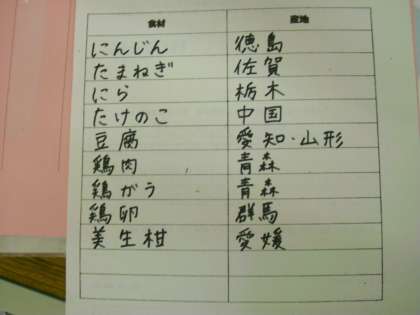 食材 産地
にんじん 徳島
たまねぎ 佐賀
にら 栃木
たけのこ 中国
豆腐 愛知・山形
鶏肉 青森
鶏がら 青森
鶏卵 群馬
美生柑 愛媛